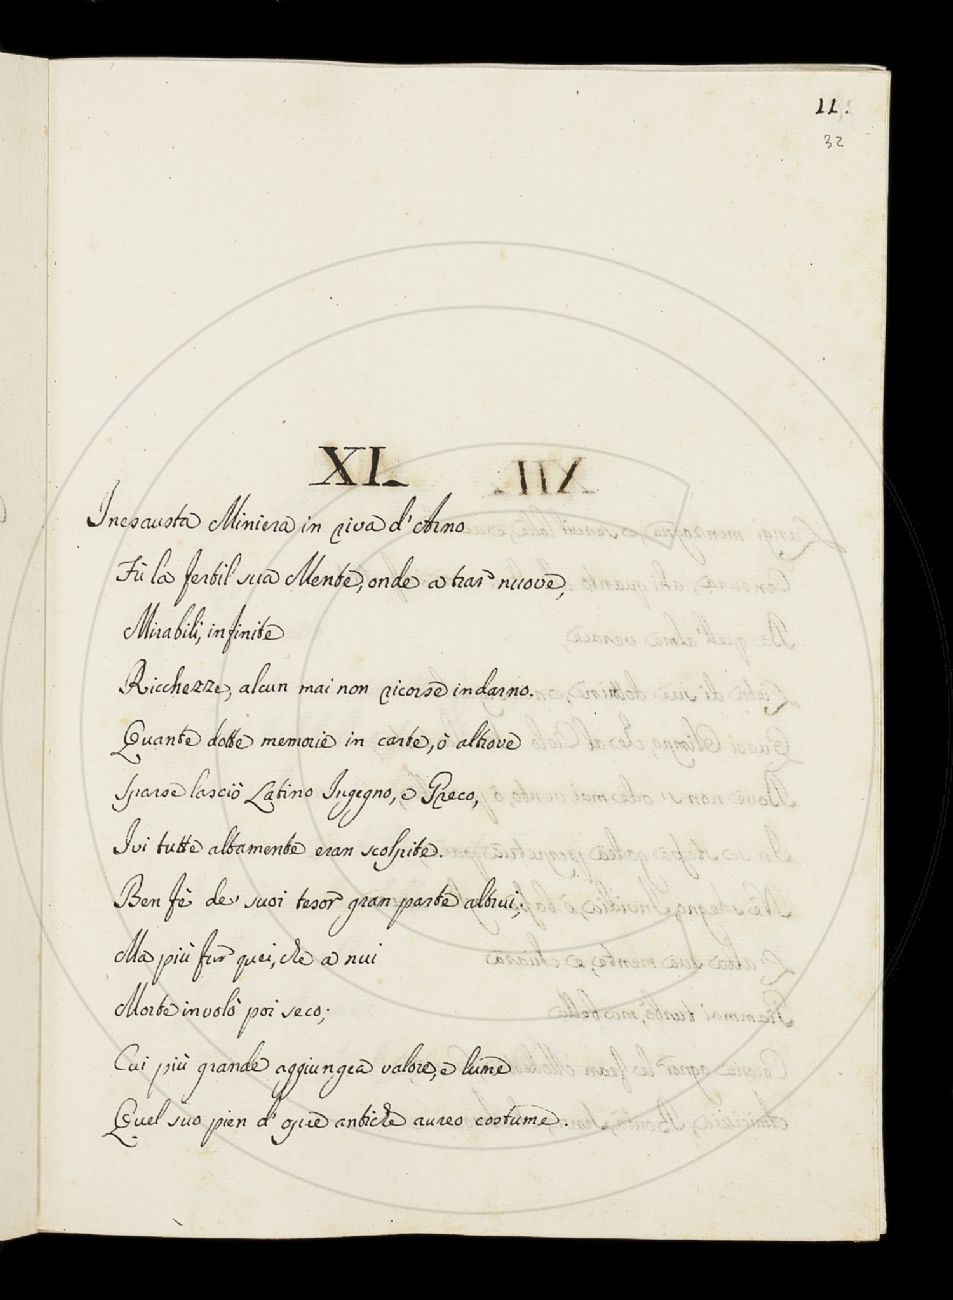 11.
32
XI.
Inesausta Miniera in riva d'Arno
Fù la fertil sua Mente, onde a trar nuove,
Mirabili, infinite
Ricchezze, alcun mai non ricorse indarno.
Quante dotte memorie in carte, ò altrove
Sparse lasciò Latino Ingegno, e Greco,
Ivi tutte altamente eran scolpite.
Ben fè de' suoi tesor gran parte altrui;
Ma più fur quei, che a nui
Morte involò poi seco;
Cui più grande aggiungea valore, e lume
Quel suo pien d' opre antiche aureo costume.